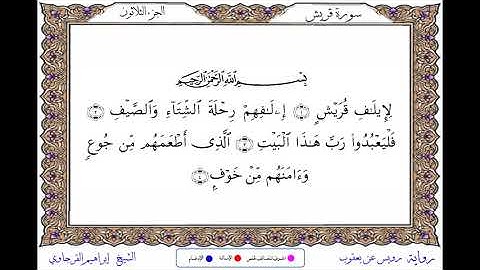 سورة قريش
الجزء الثلاثون
بسم الله الرحمن الرحيم
لِإِيلَٰفِ قُرَيْشٍ ۝١ إِۦلَٰفِهِمْ رِحْلَةَ الشِّتَآءِ وَالصَّيْفِ ۝٢
فَلْيَعْبُدُواْ رَبَّ هَٰذَا الْبَيْتِ ۝٣ الَّذِى أَطْعَمَهُم مِّن جُوعٍ
وَءَامَنَهُم مِّنْ خَوْفٍ ۝٤
رواية رويس عن يعقوب
الإمالة
الإدغام
الشيخ إبراهيم القرجاوي